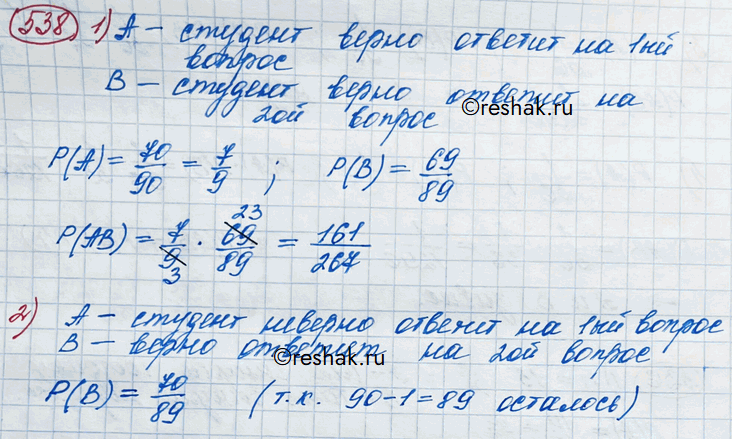 538 1) A – студент верно ответит на 1ый
вопрос
B – студент верно ответит на
2ой вопрос
©reshak.ru
P(A) = 70/90 = 7/9 ; P(B) = 69/89
P(AB) = 7/9 · 69/89 = 161/267
23
3
2) A – студент неверно ответит на 1ый вопрос
B – верно ответит на 2ой вопрос
©reshak.ru
P(B) = 70/89 (т.к. 90-1=89 осталось)